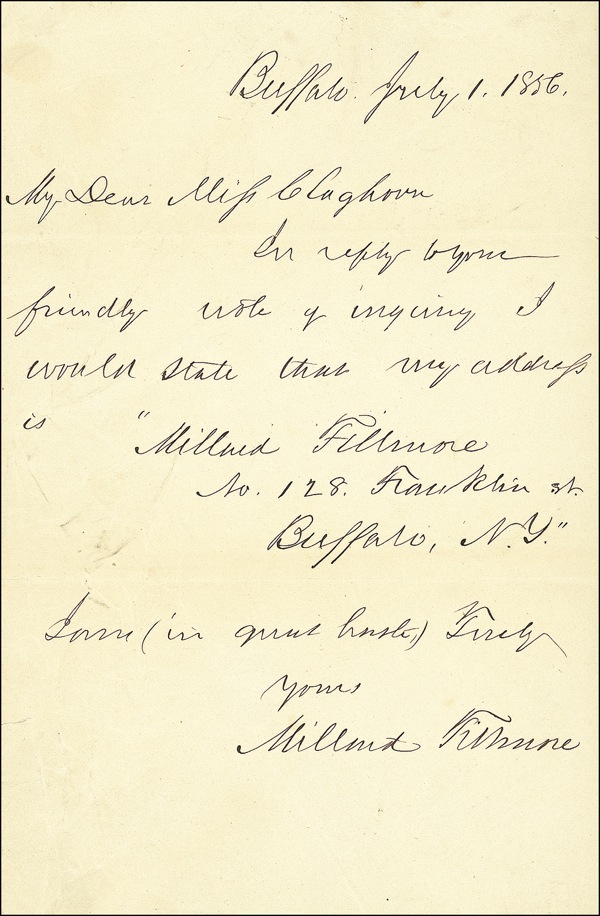 Buffalo. July 1. 1856.
My Dear Miss Claghorn
In reply to your
friendly note of inquiry I
would state that my address
is "Millard Fillmore
No. 128. Franklin st.
Buffalo, N.Y."
I am (in great haste,) Truly
yours
Millard Fillmore